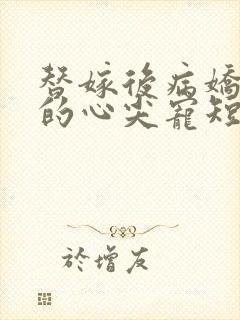 替嫁後病嬌
的心尖寵短
於增友